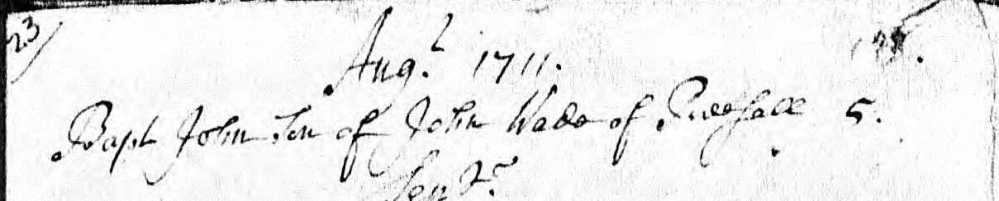 23
Aug.t 1711.
Bapt John Son of John Wade of 5.
Sep.r